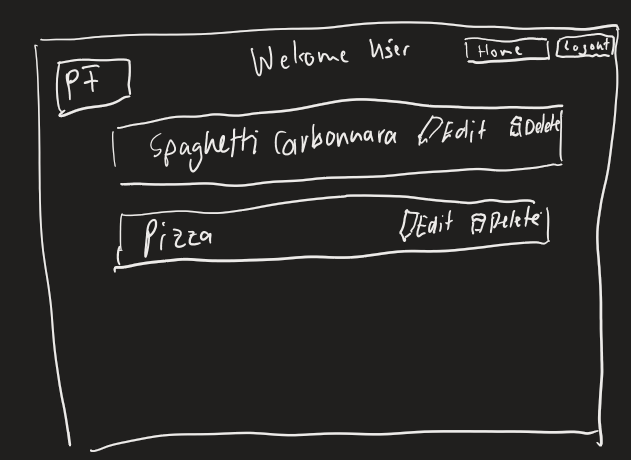 Welcome User
Home
Logout
PF
Spaghetti Carbonnara Edit Delete
Pizza Edit Delete